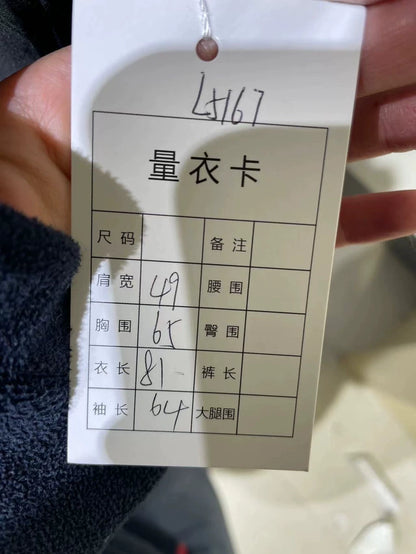 L5167
量衣卡
尺码 备注
肩宽 49 腰围
胸围 65 臀围
衣长 81 裤长
袖长 64 大腿围